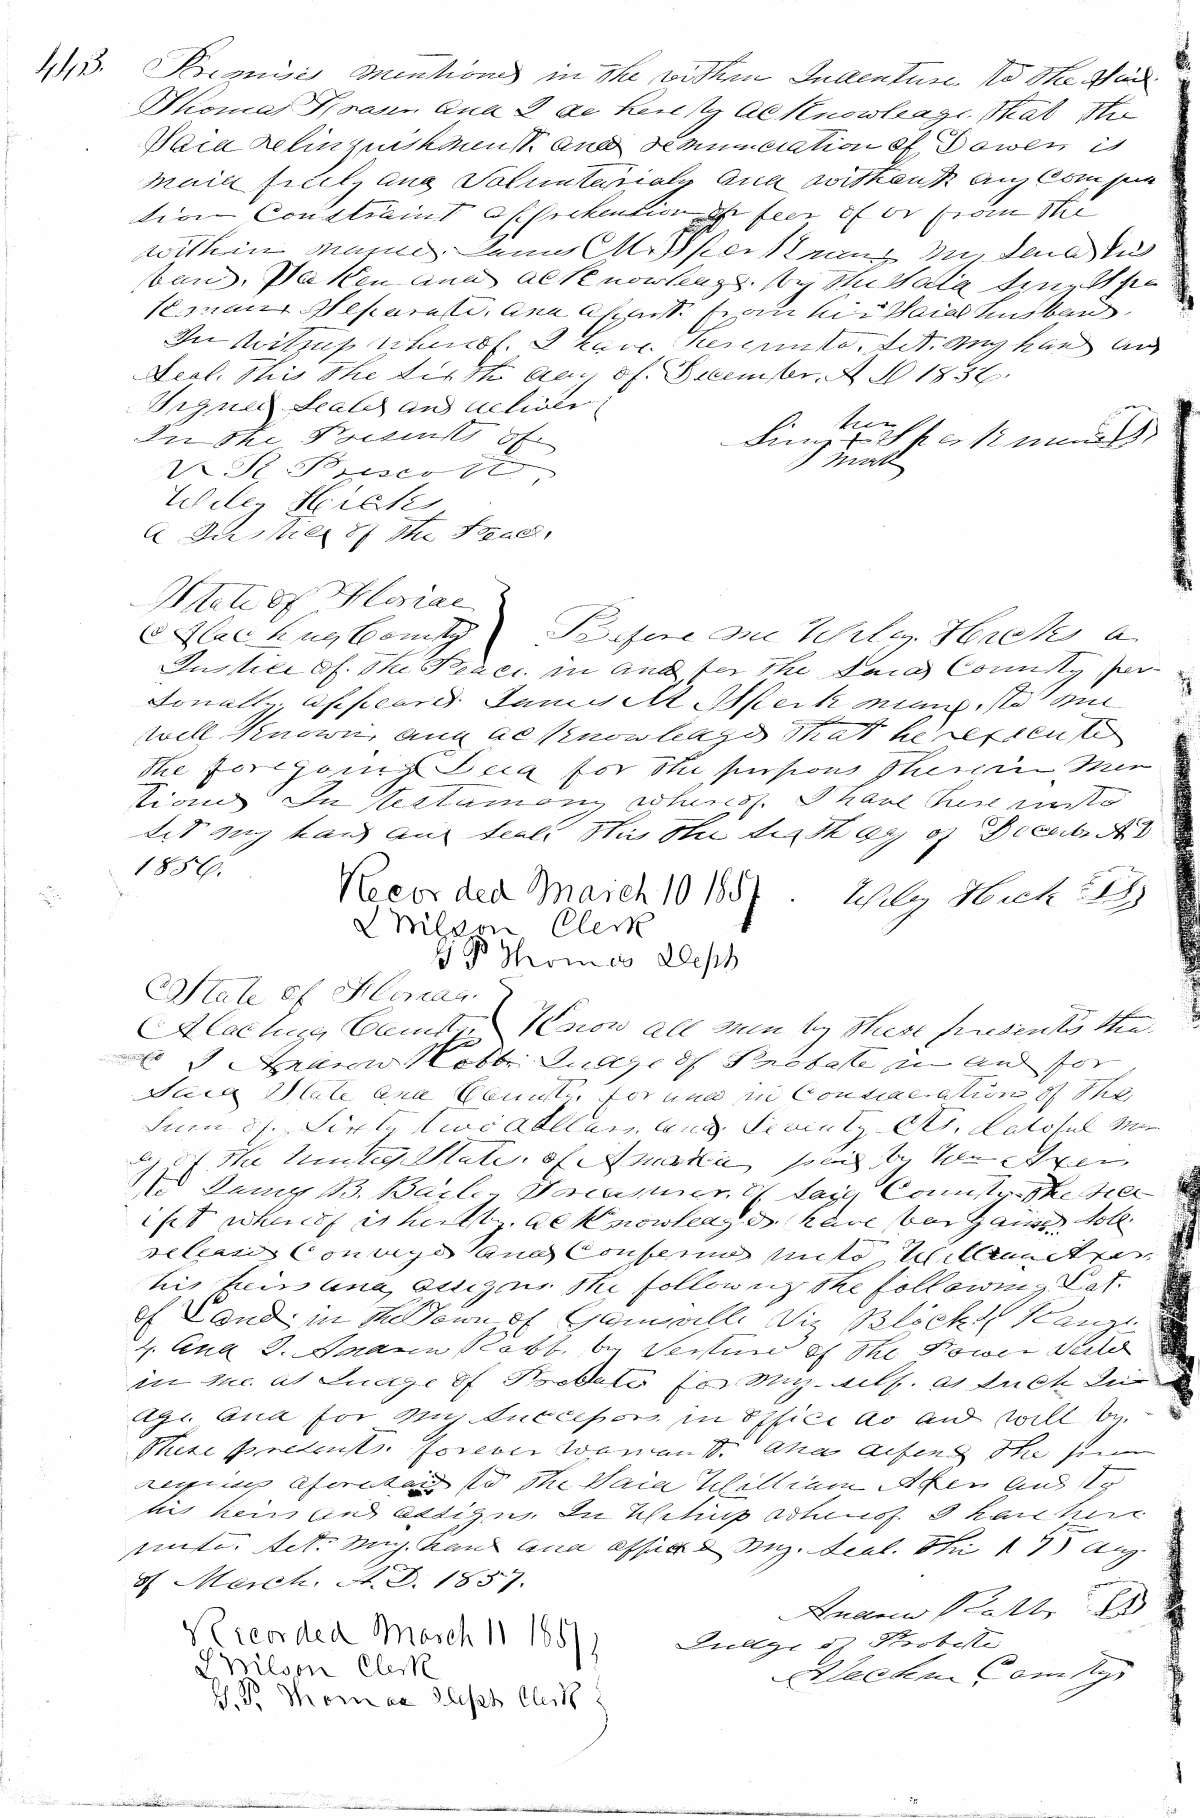 443.
Premises mentioned in the within Indenture to the Said
Thomas Fraser and I do hereby acknowledge that the
Said relinquishment and renunciation of Dower is
maid freely and Voluntarialy and without any Compul
tion Constraint apprehention or feer of or from the
within named James M Sperkman my Said hus
band. Taken and acknowledge by the Said Siny Spe
kman Seperate and apart from hir Said husband.
In Witness whereof I have hereunto Set my hand and
Seal this the Sixth day of December A D 1856.
Signed Sealed and deliver
In the Presents of
Siny her mark Sperkman LS
R Prescott
Wiley Hicks
a Justice of the Peace
State of Floriae
Alachua County Before me Wiley Hicks a
Justice of the Peace in and for the Said County per-
sonally appeared James M Sperkman to me
well Known and acknowledged that he executed
the foregoing Deed for the purpous therein Men
tioned In testamony whereof I have hereunto
Set my hand and Seal this the Sixth day of Decembr AD
1856.
Wiley Hick LS
Recorded March 10 1857
L Wilson Clerk
G P Thomas Deph
State of Florida
Alachua County Know all men by these presents tha
t I Andrew Robb Judge of Probate in and for
Said State and County for and in Consideration of the
Sum of Sixty two dollars and Seventy cts. Lawful mon
ey of the United States of America paid by Wm Axer
to James B. Bailey Treasurer of Said County the rece
ipt whereof is hereby acknowledged have bargained Sold
released Conveyed and Confermed unto William Axer
his heirs and assigns the following the following Lot
of Land in the Town of Gainsville Viz Block 4 Range
4 and I Andrew Robb by Verture of the Power Vested
in me as Judge of Probate for my-self as Such Ju
dge and for my Successors in office do and will by
these presents forever warrant and defend the prem
ises aforesaid to the Said William Axer and to
his heirs and assigns In Witness whereof I have here
unto Set my hand and affixed my Seal this 17 day
of March A.D. 1857.
Andrew Robb LS
Judge of Probate
Alachua County
Recorded March 11 1857
L Wilson Clerk
G.P. Thomas Deph Clerk